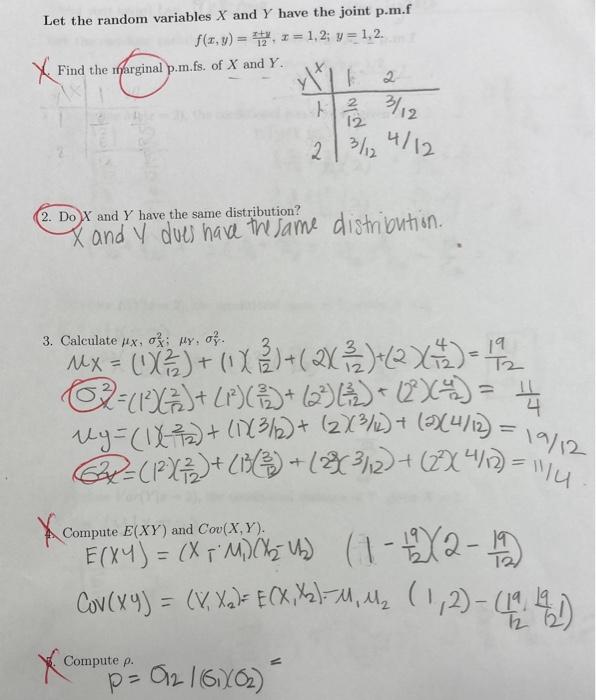 Let the random variables X and Y have the joint p.m.f
f(x, y) = x+y/12, x = 1, 2; y = 1, 2.
1. Find the marginal p.m.fs. of X and Y.
Y\X 1 2
1 2/12 3/12
2 3/12 4/12
2. Do X and Y have the same distribution?
X and Y dues have the same distribution.
3. Calculate μX, σ²X; μY, σ²Y.
Mx = (1)(2/12) + (1)(3/12) + (2)(3/12) + (2)(4/12) = 19/12
σ²x = (1²)(2/12) + (1²)(3/12) + (2²)(3/12) + (2²)(4/12) = 11/4
My = (1)(2/12) + (1)(3/12) + (2)(3/12) + (2)(4/12) = 19/12
= (1²)(2/12) + (1²)(3/12) + (2²)(3/12) + (2²)(4/12) = 11/4
4. Compute E(XY) and Cov(X, Y).
E(XY) = (X - M₁)(X₂ - U₂) (1 - 19/12)(2 - 19/12)
Cov(XY) = (X, X₂) = E(X, X₂) - M₁ M₂ (1, 2) - (19/12, 19/12)
5. Compute ρ.
p = σ12 / (σ1)(σ2) =